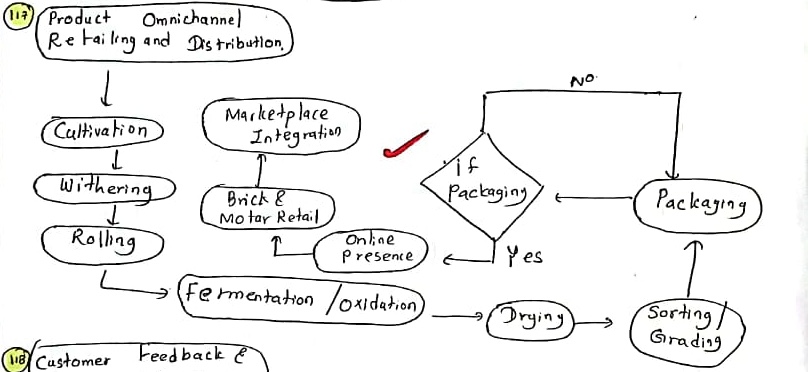 117 Product Omnichannel
Retailing and Distribution.
Cultivation
Withering
Rolling
Fermentation / Oxidation
Drying
Sorting /
Grading
Packaging
if
Packaging
No
Yes
Online
Presence
Brick &
Motar Retail
Marketplace
Integration
118 Customer Feedback &